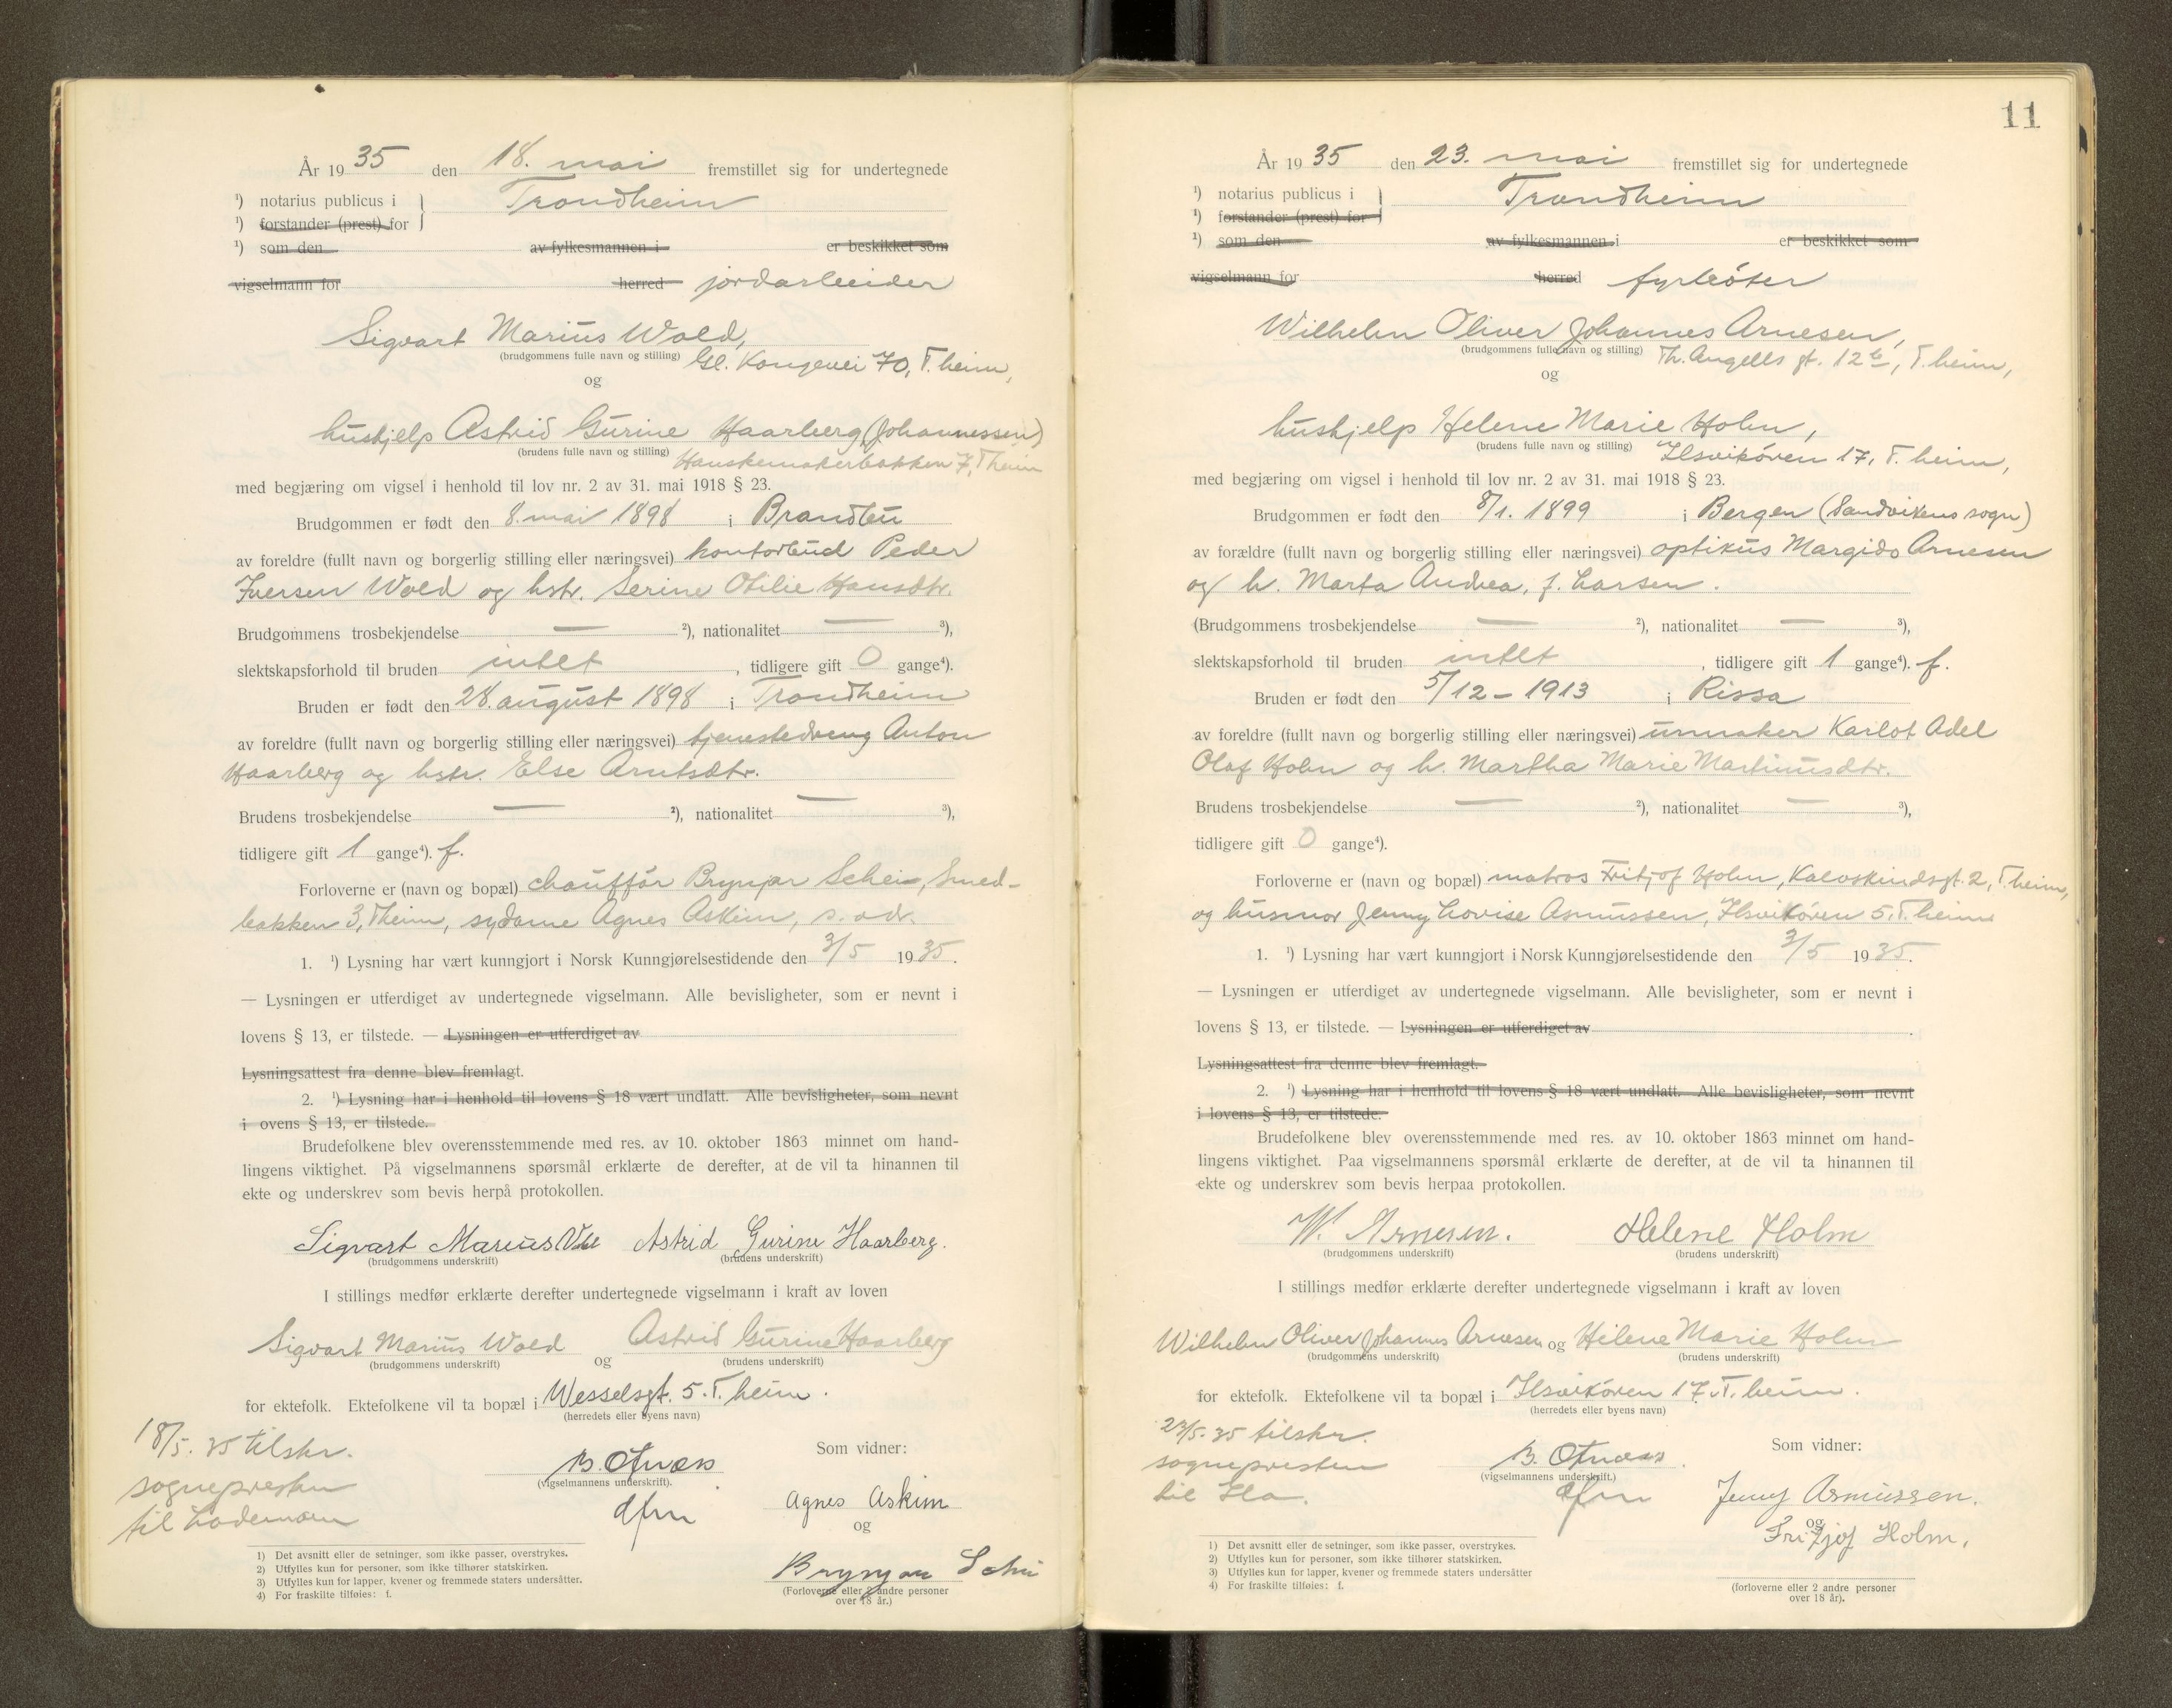 År 19 35 den 18. mai fremstillet sig for undertegnede
¹) notarius publicus i } Trondheim
¹) forstander (prest) for
¹) som den av fylkesmannen i er beskikket som
vigselmann for herred jordarbeider
Sigvart Marius Wold,
(brudgommens fulle navn og stilling) Gl. Kongevei 70, T.heim,
og
hushjelp Astrid Gurine Haarberg (Johannessen)
(brudens fulle navn og stilling) Hanskemakerbakken 7, T.heim
med begjæring om vigsel i henhold til lov nr. 2 av 31. mai 1918 § 23.
Brudgommen er født den 8. mai 1898 i Brandbu
av foreldre (fullt navn og borgerlig stilling eller næringsvei) kontorbud Peder
Iversen Wold og hstr. Serine Otilie Hansdtr.
Brudgommens trosbekjendelse — ²), nationalitet — ³),
slektskapsforhold til bruden intet, tidligere gift 0 gange⁴).
Bruden er født den 28. august 1898 i Trondheim
av foreldre (fullt navn og borgerlig stilling eller næringsvei) tjenestedreng Anton
Haarberg og hstr. Else Arntsdtr.
Brudens trosbekjendelse — ²), nationalitet — ³),
tidligere gift 1 gange⁴). f.
Forloverne er (navn og bopæl) chauffør Brynjar Schei, Smed-
bakken 3, T.heim, sydame Agnes Askim, s. adr.
1. ¹) Lysning har vært kunngjort i Norsk Kunngjørelsestidende den 3/5 19 35.
— Lysningen er utferdiget av undertegnede vigselmann. Alle bevisligheter, som er nevnt i
lovens § 13, er tilstede. — Lysningen er utferdiget av
Lysningsattest fra denne blev fremlagt.
2. ¹) Lysning har i henhold til lovens § 18 vært undlatt. Alle bevisligheter, som nevnt
i ovens § 13, er tilstede.
Brudefolkene blev overensstemmende med res. av 10. oktober 1863 minnet om hand-
lingens viktighet. På vigselmannens spørsmål erklærte de derefter, at de vil ta hinannen til
ekte og underskrev som bevis herpå protokollen.
Sigvart Marius Wold Astrid Gurine Haarberg.
(brudgommens underskrift) (brudens underskrift)
I stillings medfør erklærte derefter undertegnede vigselmann i kraft av loven
Sigvart Marius Wold og Astrid Gurine Haarberg
(brudgommens underskrift) (brudens underskrift)
for ektefolk. Ektefolkene vil ta bopæl i Wesselsgt. 5. T.heim.
(herredets eller byens navn)
18/5. 35 tilskr.
sognepresten
til Lademoen
B. Ofnæss
(vigselmannens underskrift).
Som vidner:
Agnes Askim
og
Brynjar Schei
(Forloverne eller 2 andre personer
over 18 år.)
1) Det avsnitt eller de setninger, som ikke passer, overstrykes.
2) Utfylles kun for personer, som ikke tilhører statskirken.
3) Utfylles kun for lapper, kvener og fremmede staters undersåtter.
4) For fraskilte tilføies: f.
11
År 19 35 den 23. mai fremstillet sig for undertegnede
¹) notarius publicus i } Trondheim
¹) forstander (prest) for
¹) som den av fylkesmannen i er beskikket som
vigselmann for herred fyrbøter
Wilhelm Oliver Johannes Arnesen,
(brudgommens fulle navn og stilling) Th. Angells gt. 12b, T.heim,
og
hushjelp Helene Marie Holm,
(brudens fulle navn og stilling) Ilsvikøren 17, T.heim,
med begjæring om vigsel i henhold til lov nr. 2 av 31. mai 1918 § 23.
Brudgommen er født den 8/1. 1899 i Bergen (Sandvikens sogn)
av forældre (fullt navn og borgerlig stilling eller næringsvei) optikus Margido Arnesen
og h. Marta Andrea, f. Larsen.
(Brudgommens trosbekjendelse — ²), nationalitet — ³),
slektskapsforhold til bruden intet, tidligere gift 1 gange⁴). f.
Bruden er født den 5/12 – 1913 i Rissa
av foreldre (fullt navn og borgerlig stilling eller næringsvei) urmaker Karlot Adel
Olaf Holm og h. Martha Marie Martinusdtr.
Brudens trosbekjendelse — ²), nationalitet — ³),
tidligere gift 0 gange⁴).
Forloverne er (navn og bopæl) matros Fritjof Holm, Kalvskindsgt. 2, T.heim,
og husmor Jenny Lovise Asmussen, Ilsvikøren 5, T.heim
1. ¹) Lysning har vært kunngjort i Norsk Kunngjørelsestidende den 3/5 19 35.
— Lysningen er utferdiget av undertegnede vigselmann. Alle bevisligheter, som er nevnt i
lovens § 13, er tilstede. — Lysningen er utferdiget av
Lysningsattest fra denne blev fremlagt.
2. ¹) Lysning har i henhold til lovens § 18 vært undlatt. Alle bevisligheter, som nevnt
i lovens § 13, er tilstede.
Brudefolkene blev overensstemmende med res. av 10. oktober 1863 minnet om hand-
lingens viktighet. Paa vigselmannens spørsmål erklærte de derefter, at de vil ta hinannen til
ekte og underskrev som bevis herpaa protokollen.
W. Arnesen. Helene Holm
(brudgommens underskrift) (brudens underskrift)
I stillings medfør erklærte derefter undertegnede vigselmann i kraft av loven
Wilhelm Oliver Johannes Arnesen og Helene Marie Holm
(brudgommens underskrift) (brudens underskrift)
for ektefolk. Ektefolkene vil ta bopæl i Ilsvikøren 17. T.heim.
(herredets eller byens navn)
23/5-35 tilskr.
sognepresten
til Ila.
B. Ofnæss
(vigselmannens underskift.)
Som vidner:
Jenny Asmussen.
og
Fritjof Holm,
(forloverne eller 2 andre personer
over 18 år).
1) Det avsnitt eller de setninger, som ikke passer, overstrykes.
2) Utfylles kun for personer, som ikke tilhører statskirken.
3) Utfylles kun for lapper, kvener og fremmede staters undersåtter
4) For fraskilte tilføies: f.